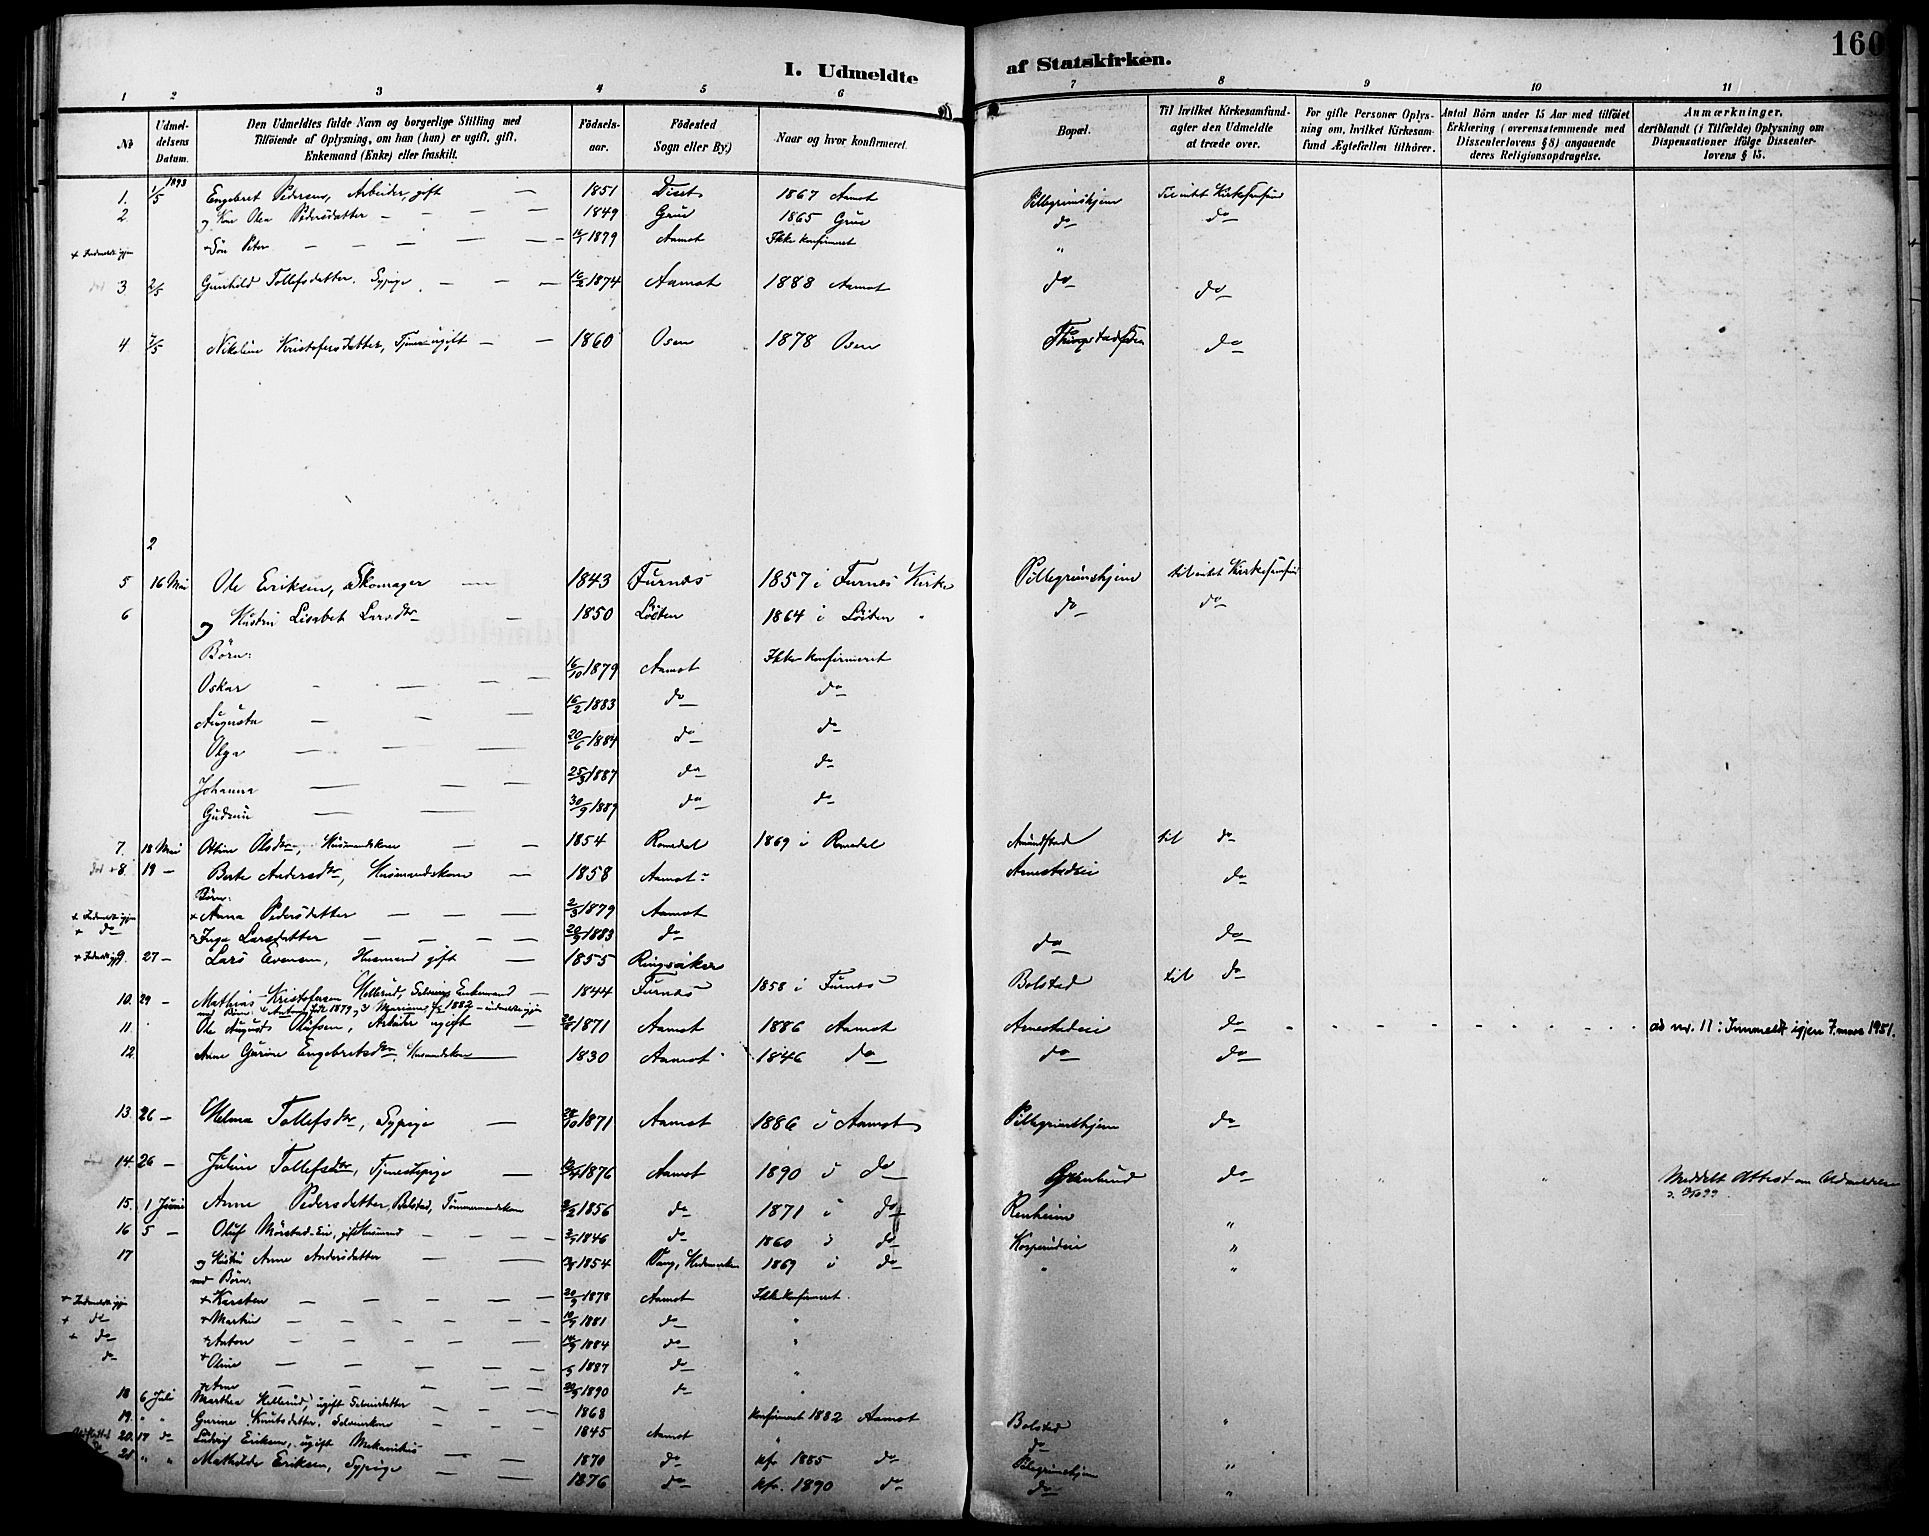 160
I. Udmeldte af Statskirken.
1 2 3 4 5 6 7 8 9 10 11
No
Udmeldelsens Datum.
Den Udmeldtes fulde Navn og borgerlige Stilling med Tilföiende af Oplysning, om han (hun) er ugift, gift, Enkemand (Enke) eller fraskilt.
Födselsaar.
Födested Sogn eller By.)
Naar og hvor konfirmeret.
Bopæl.
Til hvilket Kirkesamfund agter den Udmeldte at træde over.
For gifte Personer Oplysning om, hvilket Kirkesamfund Ægtefællen tilhörer.
Antal Börn under 15 Aar med tilföiet Erklæring (overensstemmende med Dissenterlovens § 8) angaaende deres Religionsopdragelse.
Anmærkninger, deriblandt (i Tilfælde) Oplysning om Dispensationer ifölge Dissenterlovens § 15.
1. 1/5 1893 Engebret Pedersen, Arbeider, gift 1851 1867 Aamot Pillegrimshjem Til intet Kirkesamfund
2 og Kone Olea Pedersdatter 1849 Grue 1865 Grue do do
+ Indmeldt igjen + Sön Peter 1879 Aamot Ikke konfirmeret "
3 2/5 Gunhild Tollefsdatter, Sypige 1874 Aamot 1888 Aamot do do
4 Nikoline Kristofersdatter, Tjener ugift 1860 Osen 1878 Osen do
2
5 16 Mai Ole Eriksen, Skomager 1843 Furnæs 1857 i Furnæs Kirke Pillegrimshjem til intet Kirkesamfund
6 og Hustru Lisabet Larsdtr 1850 Löiten 1864 i Löiten " do do
Börn:
Oskar 16/10 1879 Aamot Ikke konfirmeret
Augusta 16/2 1883 do do
Olga 20/6 1884 do do
Johanna 25/3 1887 do do
Gudrun 30/9 1889 do do
7. 18 Mai Olsdtr, Husmandskone 1854 Romedal 1869 i Romedal Amundstad til do
8. 19 - Berte Andersdtr, Husmandskone 1858 Aamot Arnestadeie do
Börn:
+ Indmeldt igjen + Anna Pedersdatter 2/3 1879 Aamot
+ do + Inga Larsdatter 1883 do do do
9. 27 - Lars Evensen, Husmand gift 1855 Ringsaker Bolstad til do
10. 29 - Mathias Kristofersen Hellerud, Enkemand 1844 Furnæs 1858 i Furnæs
11. Ole August Olufsen, Arbeider ugift 1871 Aamot 1886 Aamot Arnestadeie do ad nr. 11: Innmeldt igjen 7. mars 1951.
12. Anne Gurine Engebretsdtr, Husmandskone 1830 Aamot 1846 do do do
13. 26 - Helma Tollefsdtr, Sypige 1871 Aamot 1886 i Aamot Pillegrimshjem do
14. 26 - Juline Tollefsdtr, Tjenestepige 1876 Aamot 1890 i do Grönlund do " " Meddelt Attest om Udmeldelse
15. 1 Juni Anne Pedersdatter, Bolstad, Tömmermandskone 1856 do 1871 i do Renheim "
16 5 - Oluf Mörstad-Eie, gift Husmand 1846 do 1860 i do "
17 og Hustru Anne Andersdatter 1854 Vang, Hedemarken 1869 i do " "
med Börn:
+ Indmeldt igjen + Karsten 20/9 1878 Aamot Ikke konfirmeret.
+ do + Martin 1881 do "
+ do + Anton 1884 do "
do + Oline 1887 do "
+ Arne 1890 do "
18 6 Juli Marthea Hellerud, ugift 1868 konfirmeret 1882 Aamot Bolstad "
19. " " Gurine Knutsdatter 1845 Aamot " do
20. 17 do Ludvig Eriksen, ugift Mekanikus 1870 do kfr. 1885 do Pilegrimshjem "
" " Mathilde Eriksen, Sypige 1876 do kfr. 1890 do do "